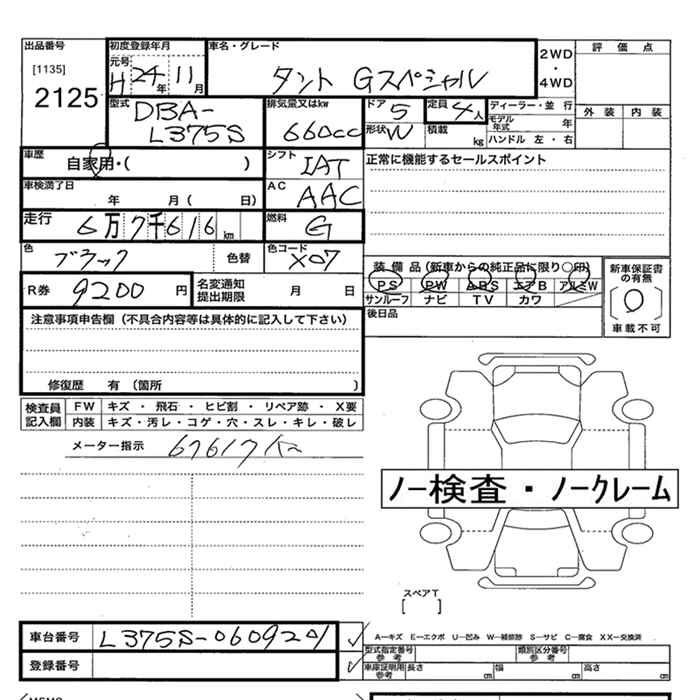 出品番号 初度登録年月 車名・グレード 2WD ・ 4WD 評価点
[1135] 元号 H 24年 11月 タント Gスペシャル
2125 型式 DBA-L375S 排気量又はkw 660cc ドア 5 定員 4人 ディーラー・並行 外装 内装
形状 W 積載 kg モデル年式 年
ハンドル 左・右
車歴 自家用・( ) シフト IAT 正常に機能するセールスポイント
車検満了日 年 月 ( 日) AC AAC
走行 6万7千616km 燃料 G
色 ブラック 色替 色コード X07 装備品(新車からの純正品に限り○印) 新車保証書の有無
PS PW ABS エアB アルミW
R券 9200円 名変通知提出期限 月 日 サンルーフ ナビ TV カワ
注意事項申告欄(不具合内容等は具体的に記入して下さい) 後日品 車載不可
修復歴 有 (箇所 )
検査員記入欄 FW キズ・飛石・ヒビ割・リペア跡・X要
内装 キズ・汚レ・コゲ・穴・スレ・キレ・破レ
メーター指示 67617
ノー検査・ノークレーム
スペアT
[ ]
車台番号 L375S-0609201
A―キズ E―エクボ U―凹み W―補修跡 S―サビ C―腐食 XX―交換済
登録番号 型式指定番号 参考 類別区分番号 参考
車庫証明用参考 長さ cm 幅 cm 高さ cm
MEMO